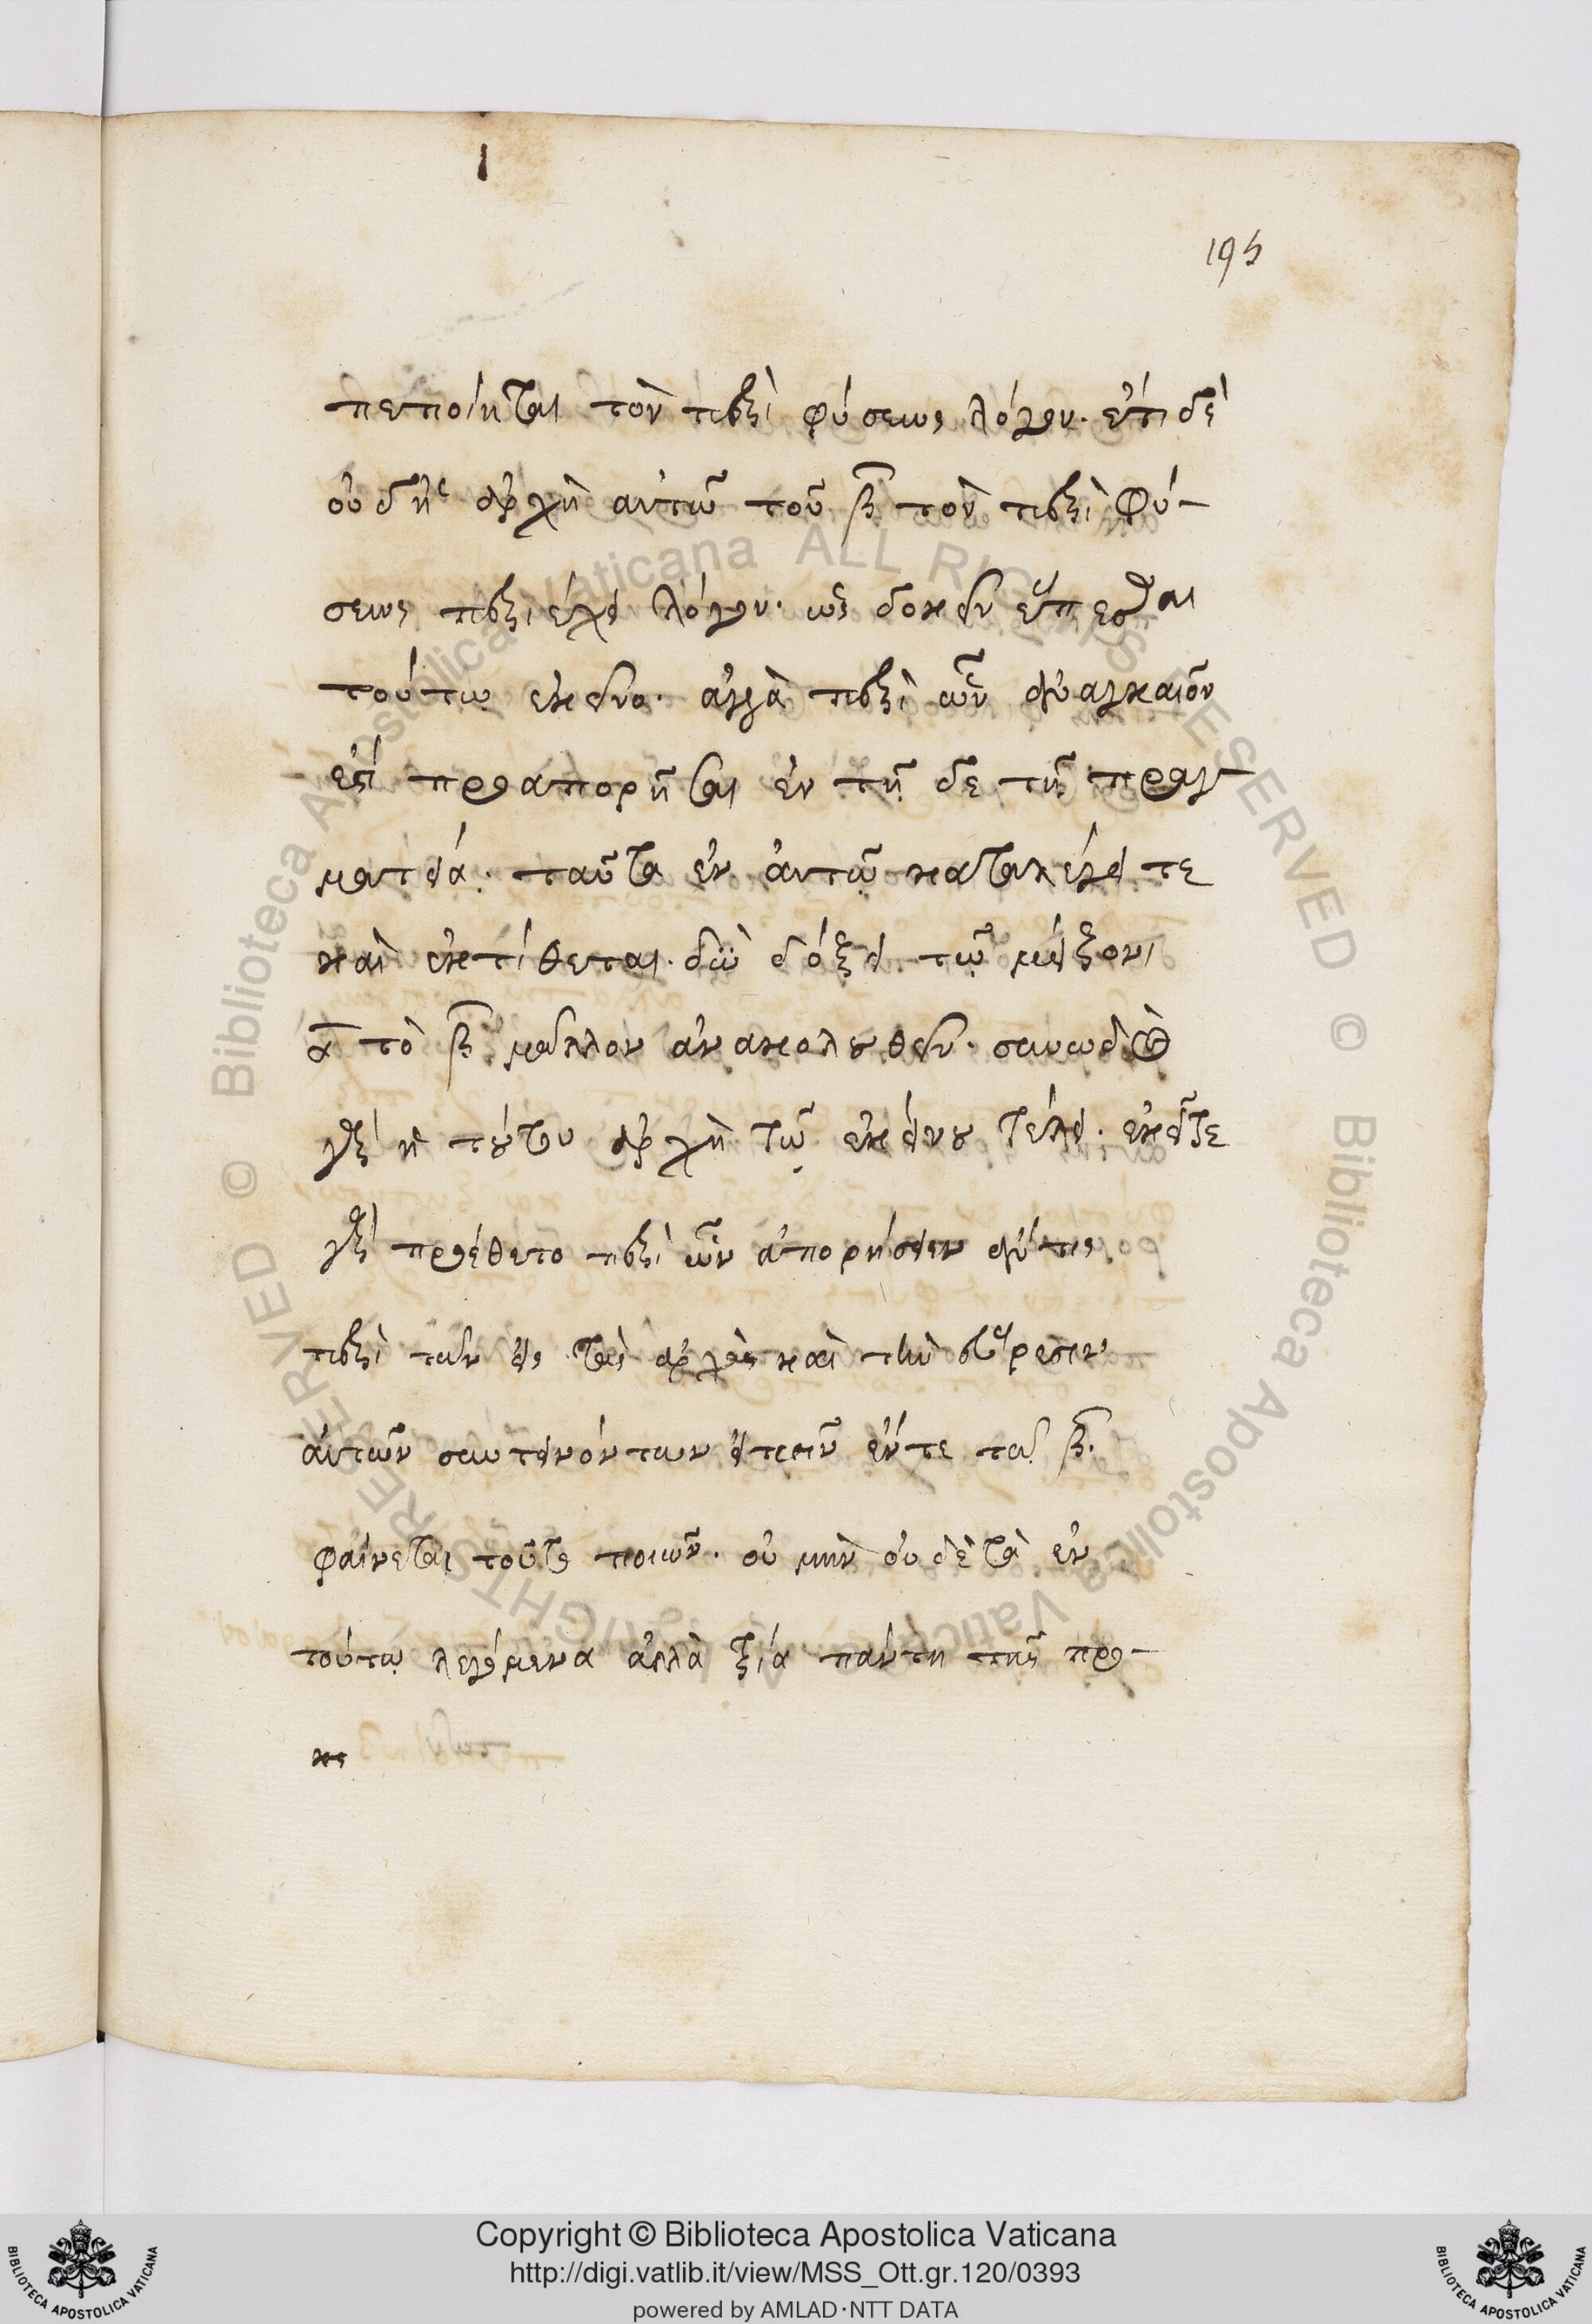 195
πεποίηται τὸν περὶ φύσεως λόγον. ἔτι δὲ
οὐδ' ἡ ἀρχὴ αὐτῶ τοῦ β τὸν περὶ φύ-
σεως περιέχει λόγον. ὡς δοκεῖν ἕπεσθαι
τούτῳ ἐκεῖνο. ἀλλὰ περὶ ὧν ἀναγκαῖον
ἐστὶ προαπορῆσαι ἐν τῇ δε τῇ πραγ-
ματείᾳ. ταῦτα ἐν αὐτῷ καταλέγει τε
καὶ ἐκτίθεται. διὸ δόξει τῷ μείζονι
α τὸ β μᾶλλον ἀκολουθεῖν. συνωδὸς
γὰρ ἡ τούτου ἀρχὴ τῷ ἐκείνου τέλει. ἐκεῖ τε
γὰρ προέθετο περὶ ὧν ἀπορήσειεν ἄν τις
περὶ τῶν εἰς τὰς ἀρχὰς καὶ τὴν εὕρεσιν
αὐτῶν συντεινόντων εἰπεῖν ἔν τε τῷ β.
φαίνεται τοῦτο ποιῶν. οὐ μὴν οὐδὲ τὰ ἐν
τούτῳ λεγόμενα ἀλλότρια πάντη τῆς προ-
κει
Copyright © Biblioteca Apostolica Vaticana
http://digi.vatlib.it/view/MSS_Ott.gr.120/0393
powered by AMLAD·NTT DATA